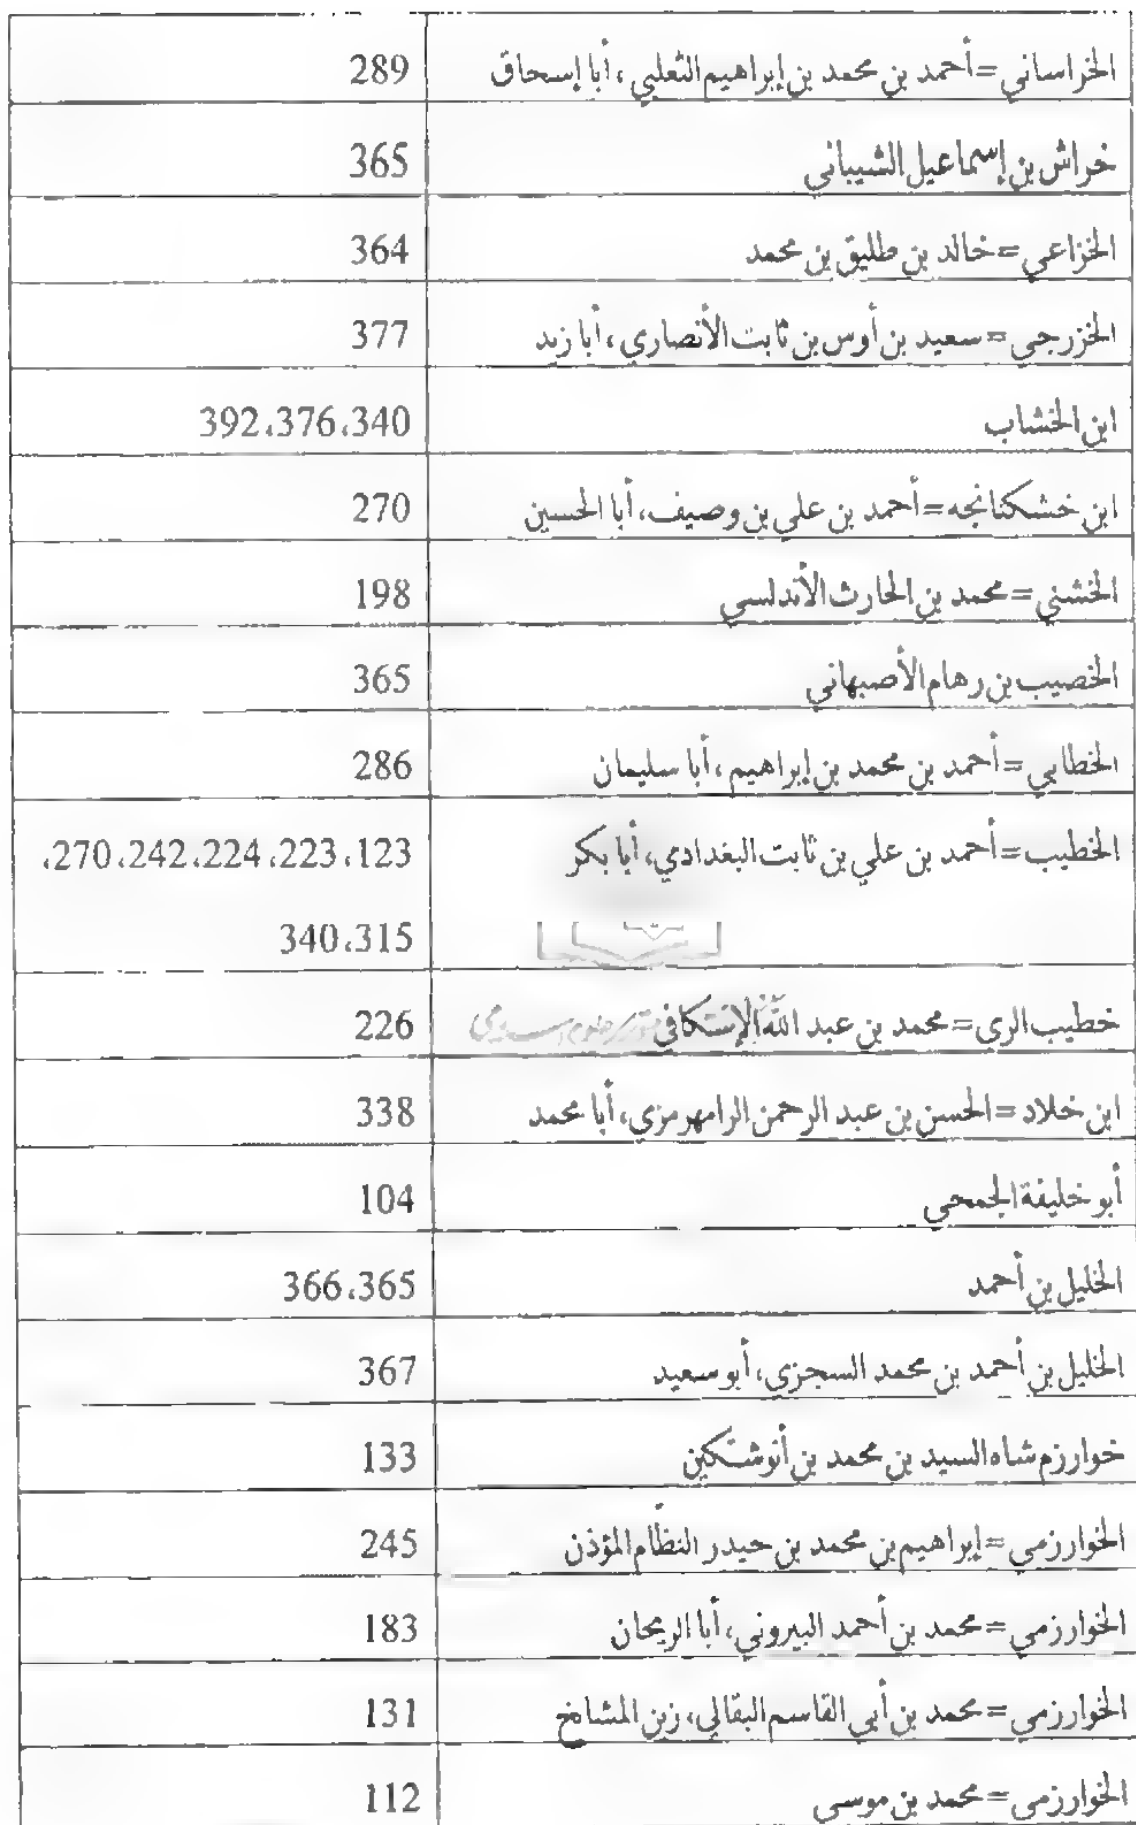 الخراساني = أحمد بن محمد بن إبراهيم الثعلبي، أبا إسحاق 289
خراش بن إسماعيل الشيباني 365
الخزاعي = خالد بن طليق بن محمد 364
الخزرجي = سعيد بن أوس بن ثابت الأنصاري، أبا زيد 377
ابن الخشاب 340، 376، 392
ابن خشكنانجه = أحمد بن علي بن وصيف، أبا الحسين 270
الخشني = محمد بن الحارث الأندلسي 198
الخصيب بن رهام الأصبهاني 365
الخطابي = أحمد بن محمد بن إبراهيم، أبا سليمان 286
الخطيب = أحمد بن علي بن ثابت البغدادي، أبا بكر 123، 223، 224، 242، 270،
315، 340
خطيب الري = محمد بن عبد الله الإسكافي 226
ابن خلاد = الحسن بن عبد الرحمن الرامهرمزي، أبا محمد 338
أبو خليفة الجمحي 104
الخليل بن أحمد 365، 366
الخليل بن أحمد بن محمد السجزي، أبو سعيد 367
خوارزم شاه السيد بن محمد بن أنوشتكين 133
الخوارزمي = إبراهيم بن محمد بن حيدر النظام المؤذن 245
الخوارزمي = محمد بن أحمد البيروني، أبا الريحان 183
الخوارزمي = محمد بن أبي القاسم البقالي، زين المشايخ 131
الخوارزمي = محمد بن موسى 112